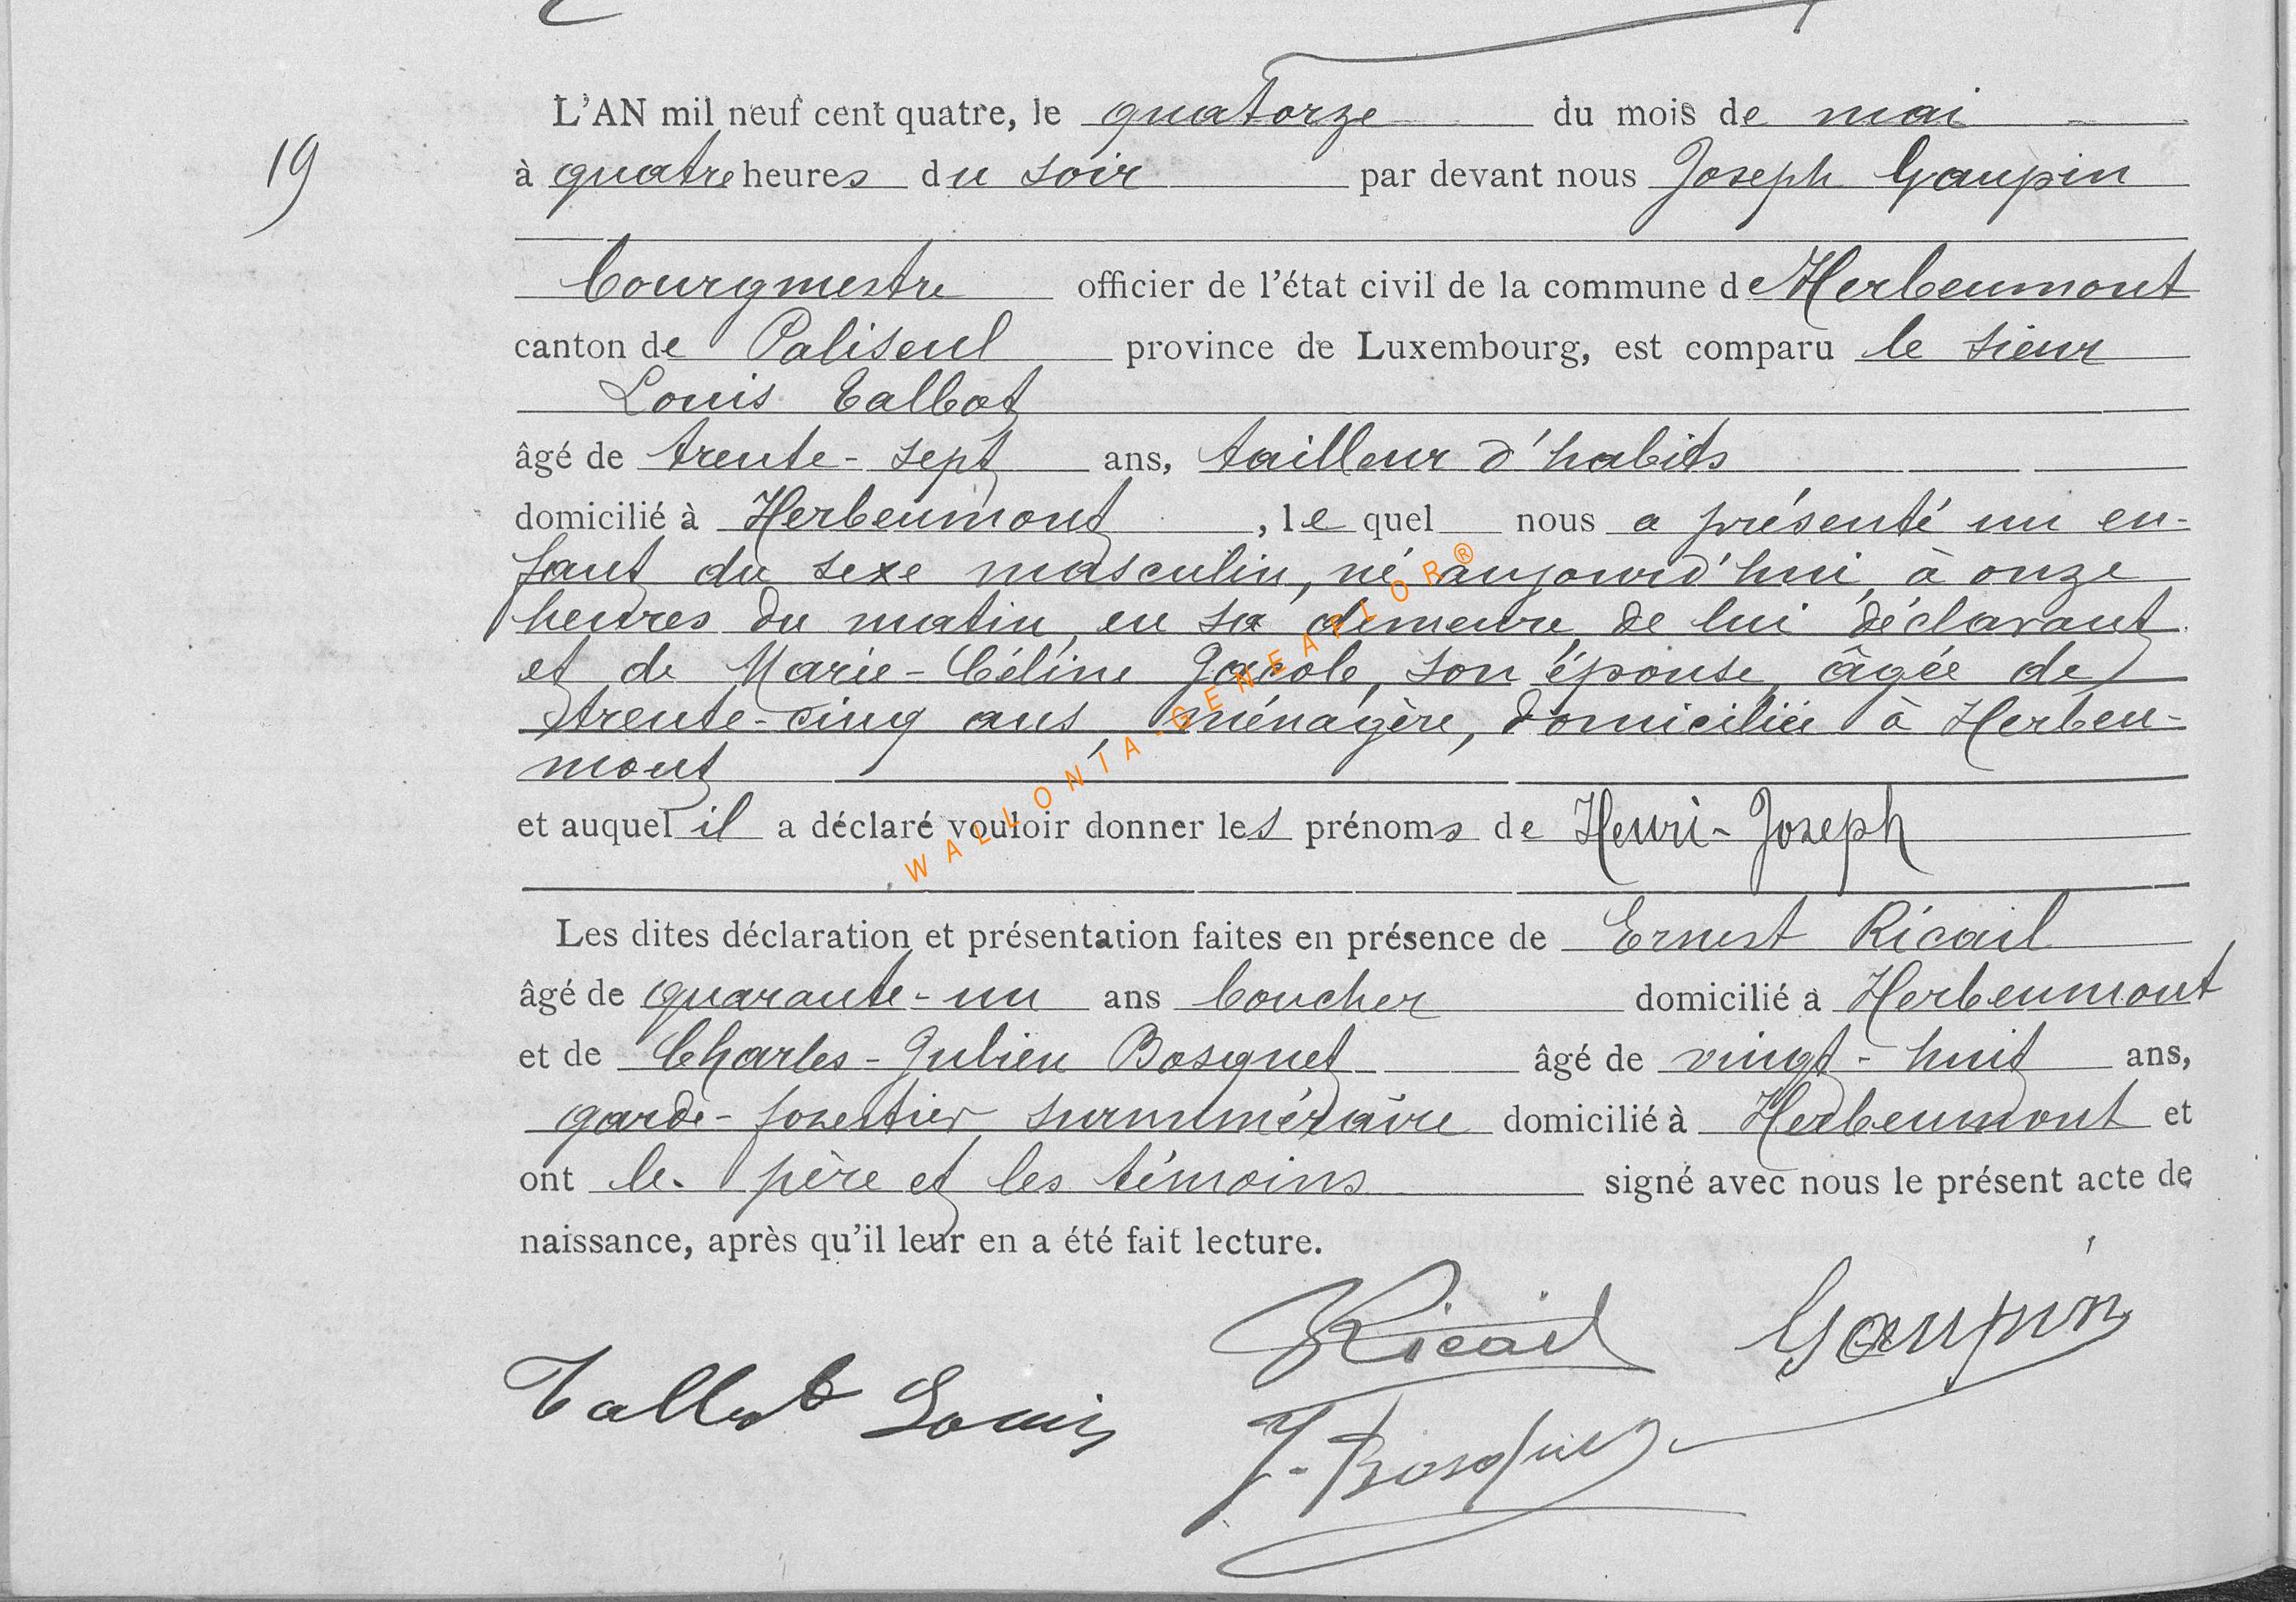 19
L'AN mil neuf cent quatre, le quatorze du mois de mai
à quatre heures du soir par devant nous Joseph Gaupin
bourgmestre officier de l'état civil de la commune de Herbeumont
canton de Paliseul province de Luxembourg, est comparu le sieur
Louis Talbot
âgé de trente-sept ans, tailleur d'habits
domicilié à Herbeumont, le quel nous a présenté un en-
fant du sexe masculin, né aujourd'hui, à onze
heures du matin, en sa demeure, de lui déclarant
et de Marie-Céline Jacob, son épouse, âgée de
trente-cinq ans, ménagère, domiciliée à Herbeu-
mont
et auquel il a déclaré vouloir donner les prénoms de Henri-Joseph
Les dites déclaration et présentation faites en présence de Ernest Ricail
âgé de quarante-un ans boucher domicilié à Herbeumont
et de Charles-Julien Bosquet âgé de vingt-huit ans,
garde-forestier surnuméraire domicilié à Herbeumont et
ont le père et les témoins signé avec nous le présent acte de
naissance, après qu'il leur en a été fait lecture.
Ricail Gaupin
Talbot Louis
J. Bosquet
WALLONIA-GENEAPIOR®